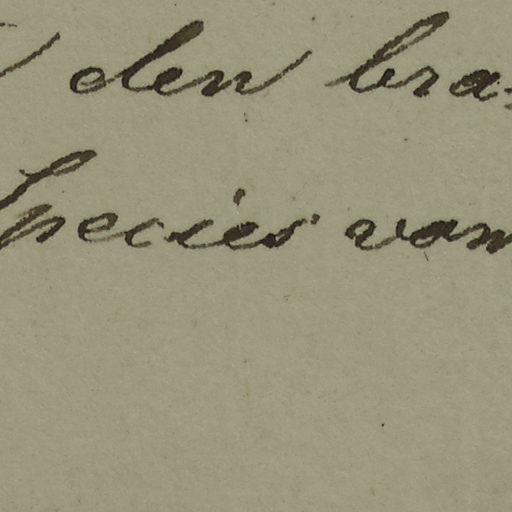 den bra-
Species van